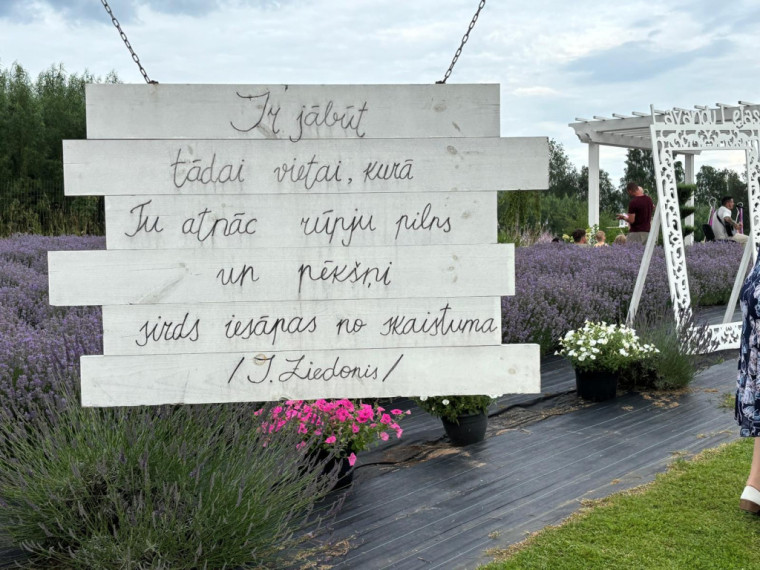 Ir jābūt
tādai vietai, kurā
Tu atnāc rūpju pilns
un pēkšņi
sirds iesāpas no skaistuma
/I. Ziedonis/